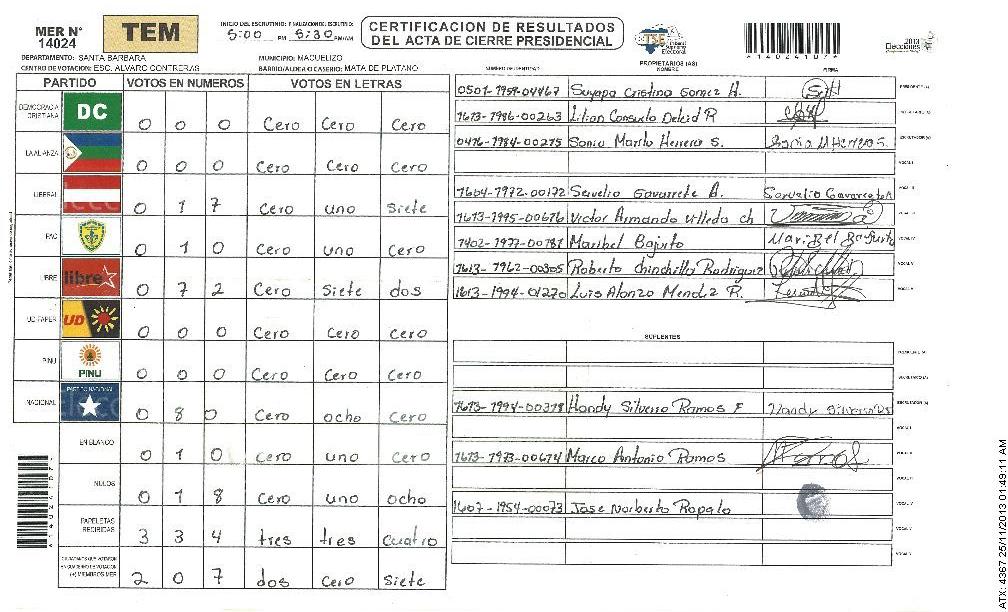 MER N° 14024
TEM
INICIO DEL ESCRUTINIO: FINALIZACION DEL ESCRUTINIO:
5:00 PM 5:30 PM/AM
CERTIFICACION DE RESULTADOS
DEL ACTA DE CIERRE PRESIDENCIAL
TSE Tribunal Supremo Electoral
*14024107*
2013 Elecciones
DEPARTAMENTO: SANTA BARBARA MUNICIPIO: MACUELIZO
CENTRO DE VOTACION: ESC. ALVARO CONTRERAS BARRIO/ALDEA O CASERIO: MATA DE PLATANO
PARTIDO VOTOS EN NUMEROS VOTOS EN LETRAS
DEMOCRACIA CRISTIANA DC 0 0 0 Cero Cero Cero
LA ALIANZA 0 0 0 Cero Cero Cero
LIBERAL 0 1 7 Cero uno Siete
PAC 0 1 0 Cero uno Cero
LIBRE libre 0 7 2 Cero Siete dos
UD FAPER UD 0 0 0 Cero Cero Cero
PINU PINU 0 0 0 Cero Cero Cero
NACIONAL PARTIDO NACIONAL 0 8 0 Cero ocho Cero
EN BLANCO 0 1 0 Cero uno Cero
NULOS 0 1 8 Cero uno ocho
PAPELETAS RECIBIDAS 3 3 4 tres tres cuatro
CIUDADANOS QUE VOTARON EN CUADERNO DE VOTACION (+) MIEMBROS MER 2 0 7 dos Cero Siete
NUMERO DE IDENTIDAD PROPIETARIOS (AS) NOMBRE FIRMA
0501-1959-04467 Suyapa Cristina Gomez H. PRESIDENTE (A)
1613-1986-00263 Lilian Consuelo Delcid R SECRETARIO (A)
0416-1984-00275 Sonia Marilo Herrera S. Sonia M Herrera S. ESCRUTADOR (A)
VOCAL I
1604-1972-00172 Servelio Gavarrete A. Servelio Gavarrete A VOCAL II
1613-1995-00676 Victor Armando Villeda ch VOCAL III
1402-1977-00781 Maribel Bajurto VOCAL IV
1613-1962-00305 Roberto Chinchilla Rodriguez VOCAL V
1613-1994-01270 Luis Alonzo Mendez R.
SUPLENTES
PRESIDENTE (A)
SECRETARIO (A)
1613-1994-00378 Handy Silverio Ramos F ESCRUTADOR (A)
VOCAL I
1613-1973-00674 Marco Antonio Ramos VOCAL II
VOCAL III
1607-1954-00073 Jose Norberto Rapalo VOCAL IV
VOCAL V
*14024107*
ATX: 4367 25/11/2013 01:49:11 AM